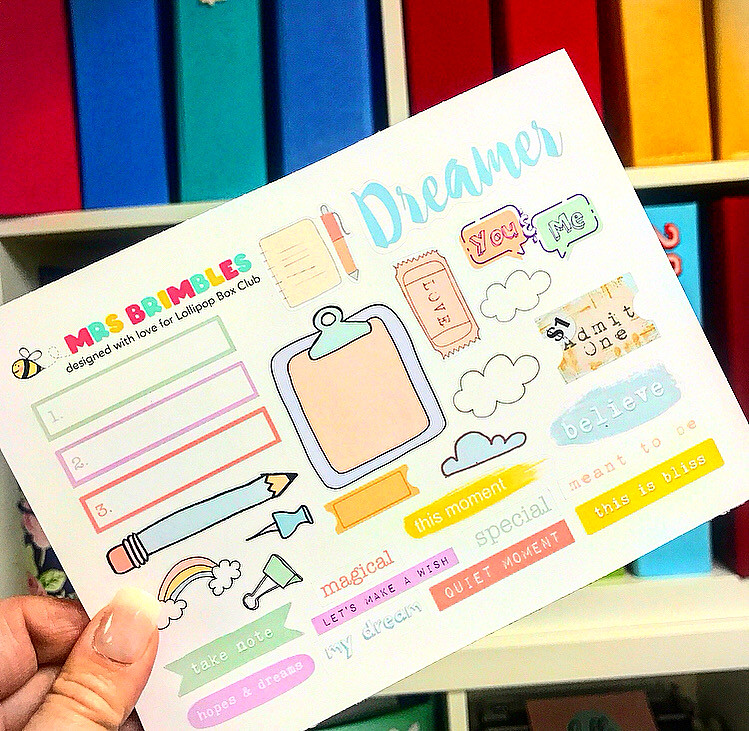 Dreamer
You & Me
MRS BRIMBLES
designed with love for Lollipop Box Club
LOVE
$1
Admit
One
1.
2.
3.
believe
meant to be
this is bliss
this moment
special
QUIET MOMENT
magical
LET'S MAKE A WISH
my dream
take note
hopes & dreams